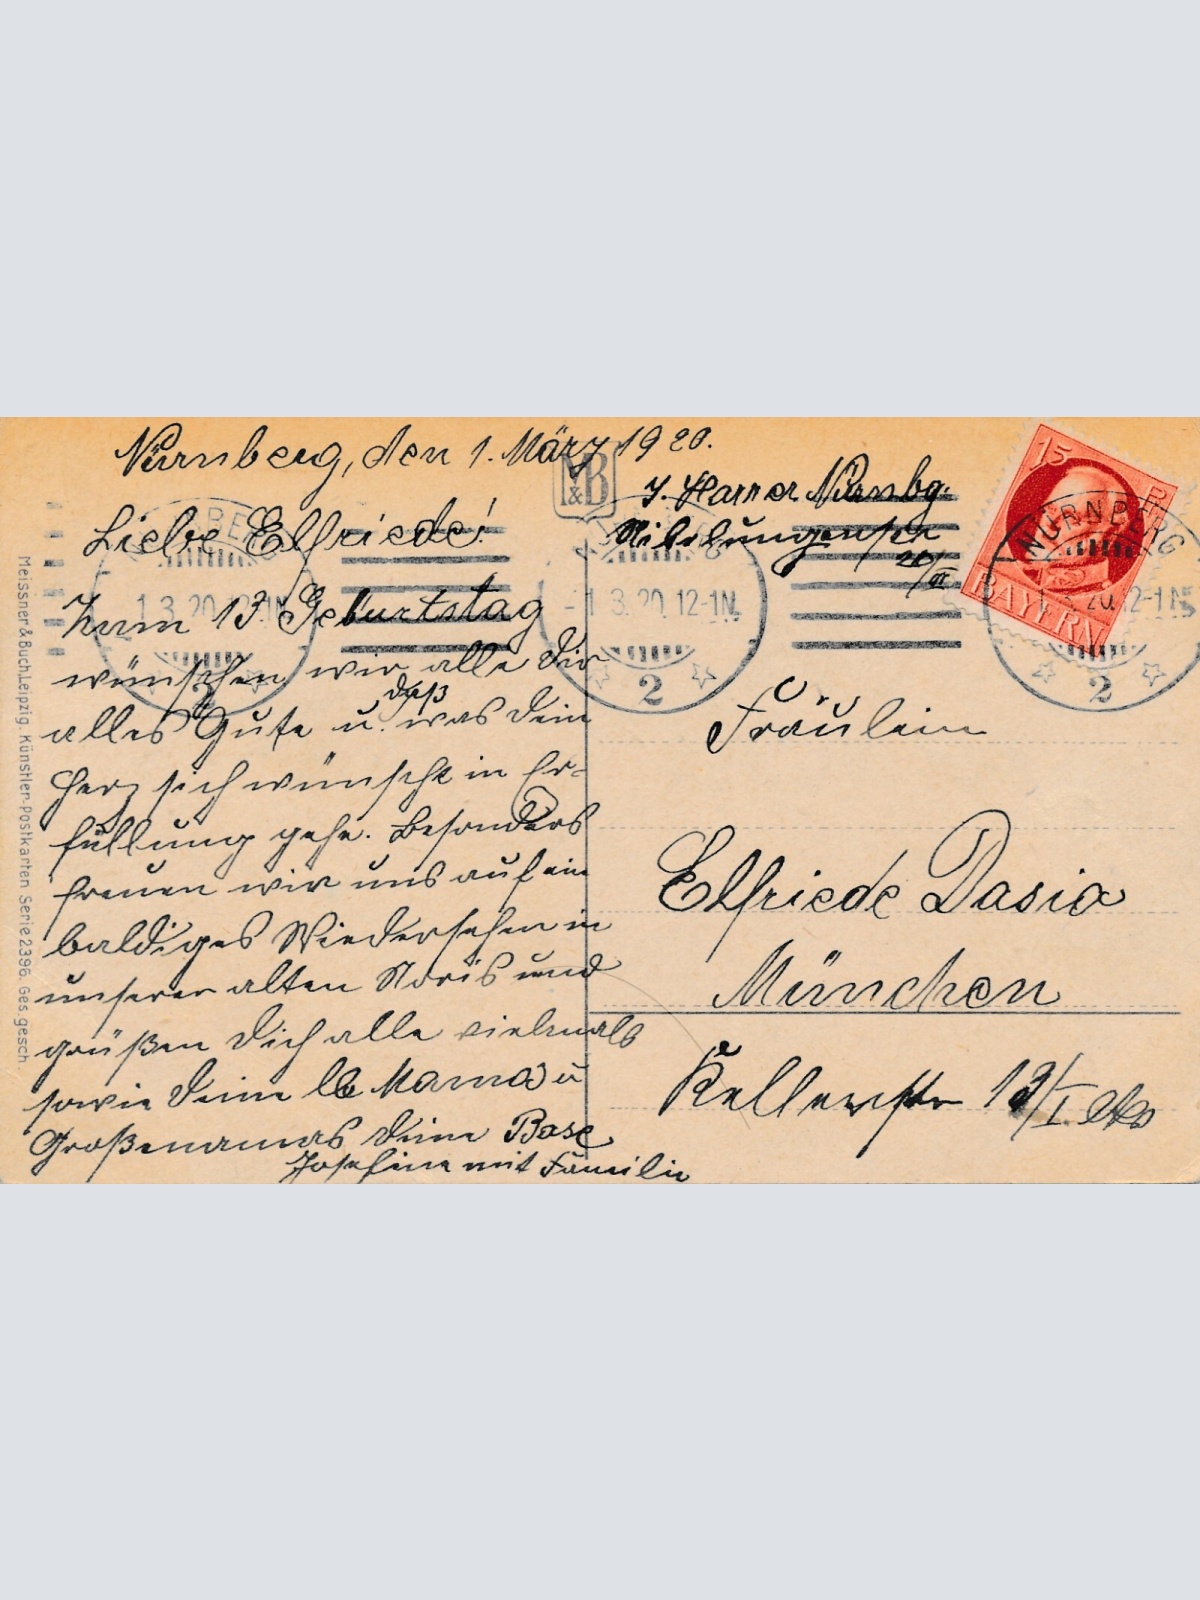 Nürnberg, den 1. März 1920.
Liebe Elfriede!
Zum 13. Geburtstag
wünschen wir alle Dir
alles Gute u. daß was Dein
Herz sich wünscht in Er-
füllung gehe. Besonders
freuen wir uns auf ein
baldiges Wiedersehen in
unserer alten Noris und
grüßen Dich alle vielmals
sowie Deine lb Mama u
Großmamas Deine Base
Josefine mit Familie
J. Harrer Nürnbg.
Nibelungenstr
20/III
Fräulein
Elfriede Dasia
München
Kellerstr 13/I.
M&B
Meissner & Buch, Leipzig. Künstler-Postkarten Serie 2396. Ges. gesch.
NÜRNBERG
1.3.20. 12-1N.
2
NÜRNBERG
1.3.20. 12-1N.
2
15
BAYERN